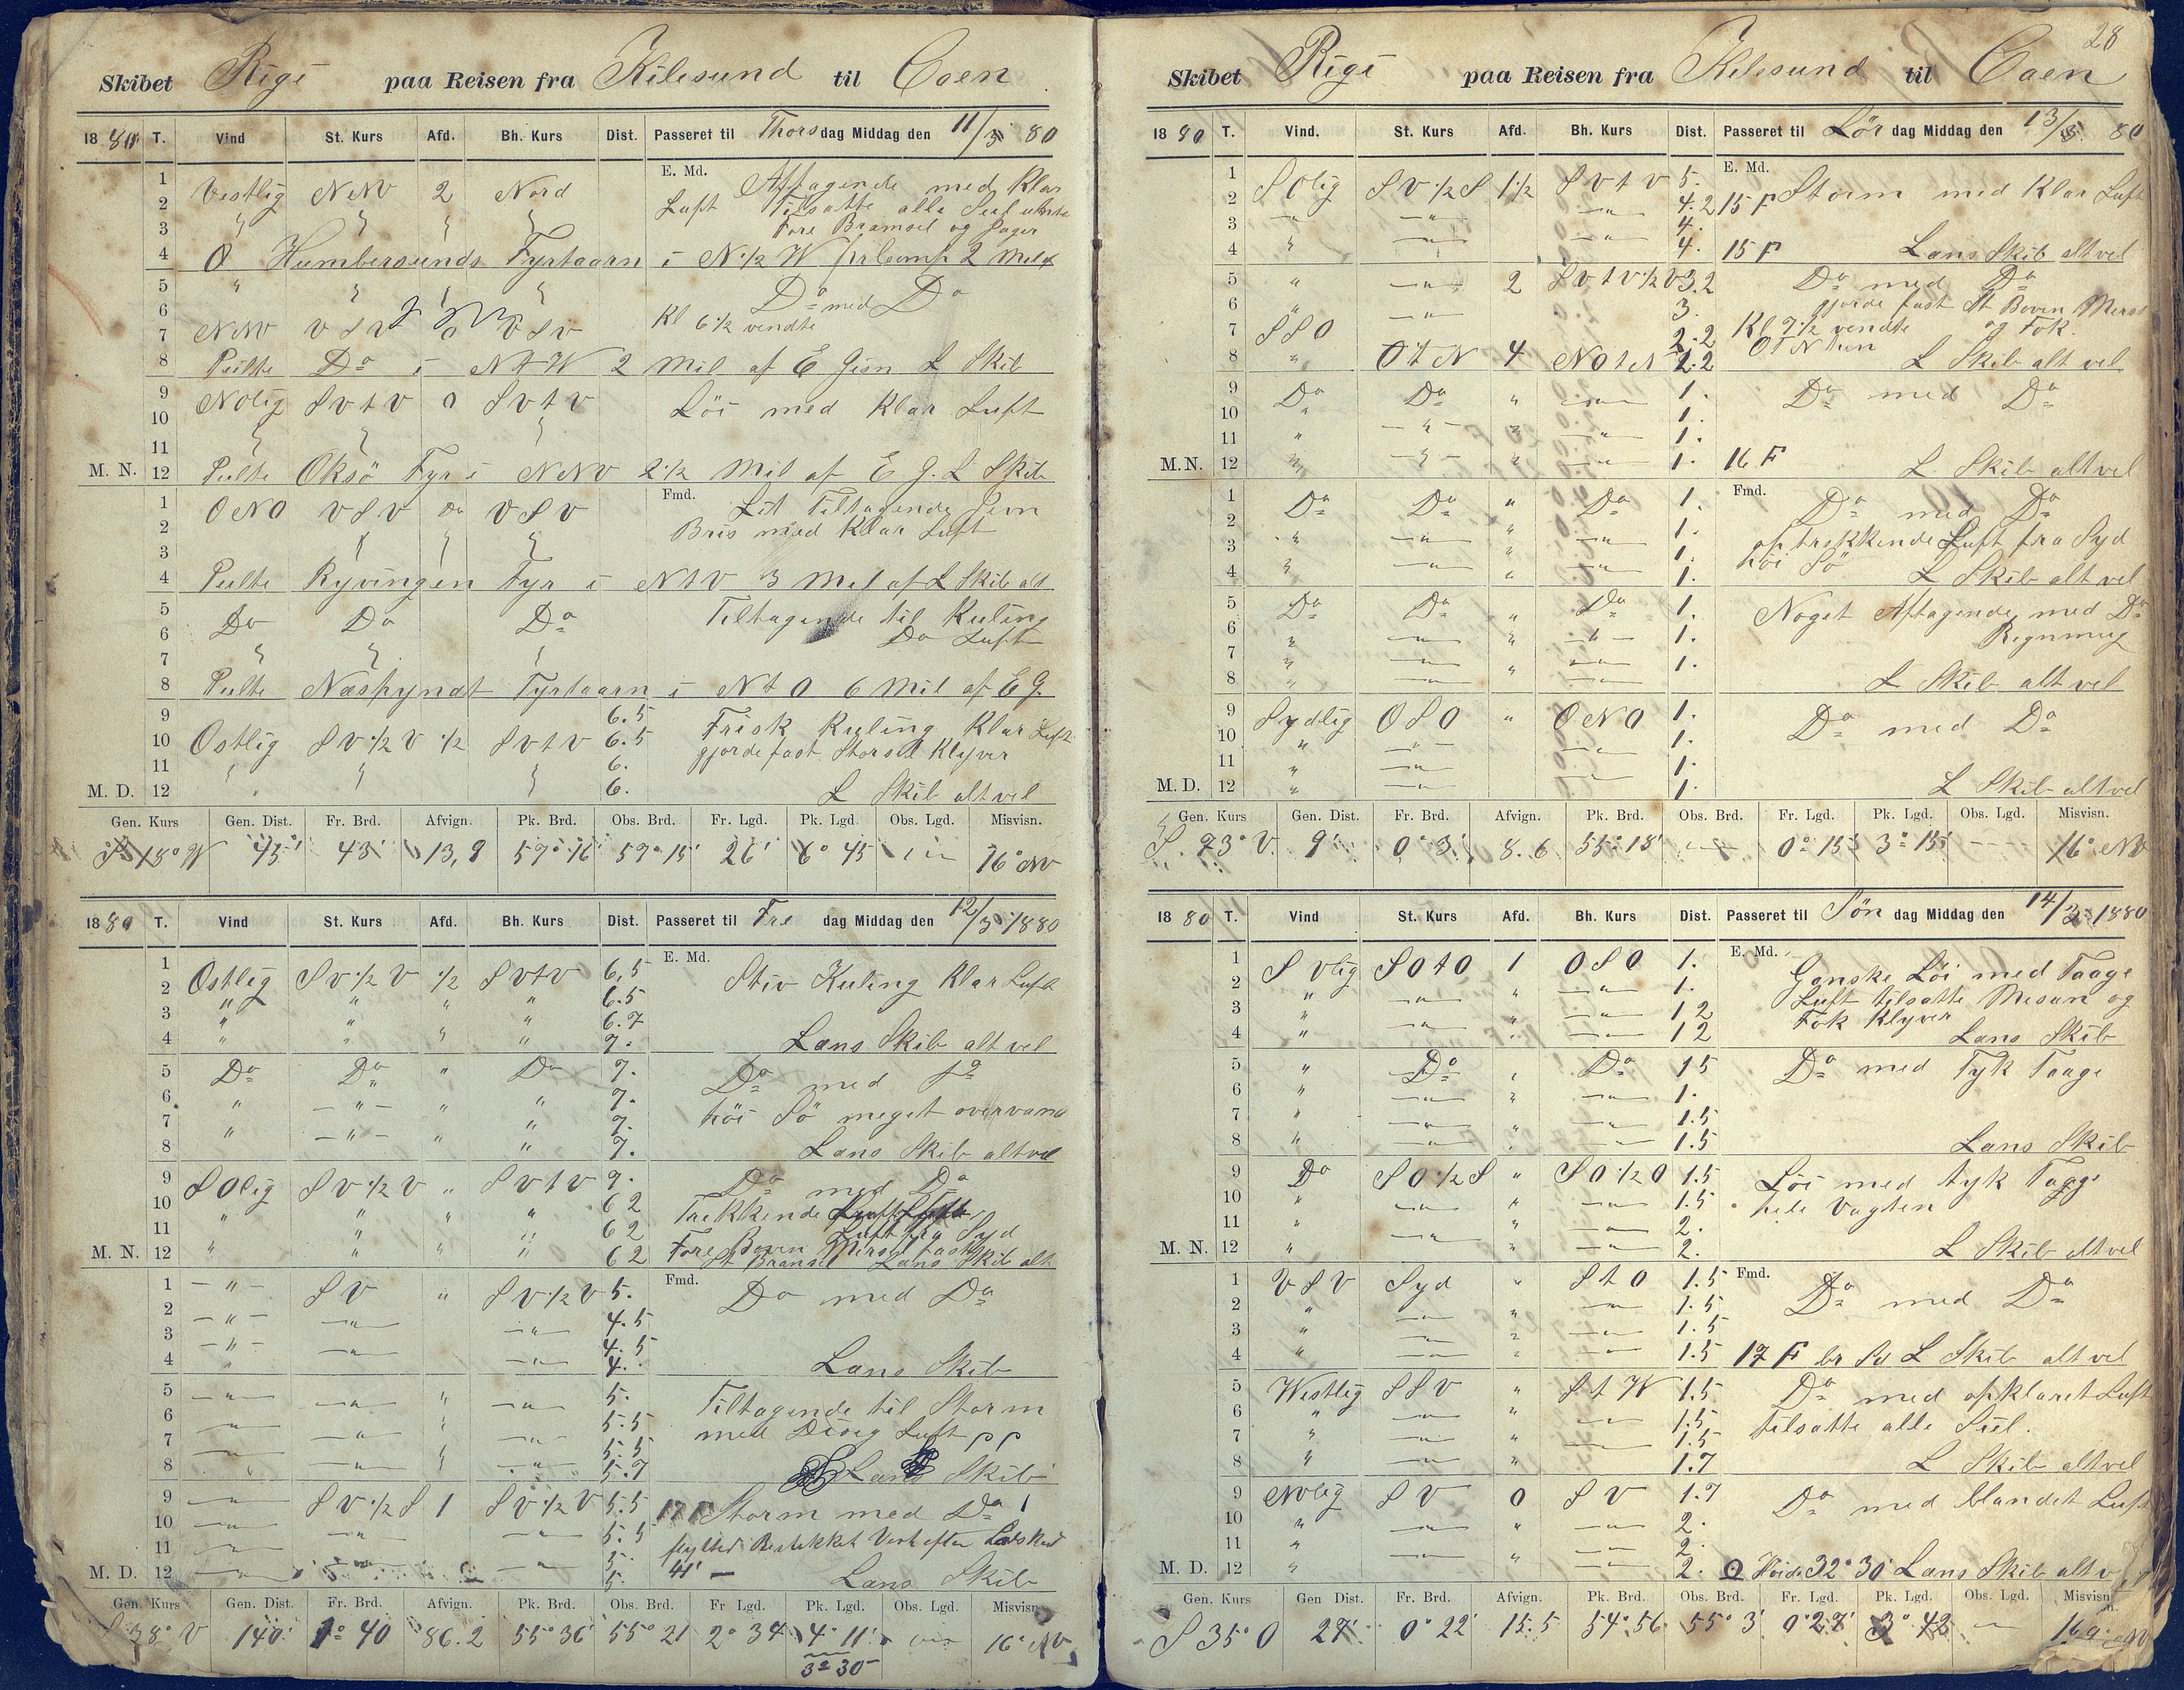 Skibet Rigi paa Reisen fra Kilesund til Caen
1880 T. Vind St. Kurs Afd. Bh. Kurs Dist. Passeret til Thorsdag Middag den 11/3 80
E. Md.
1 Vestlig NNV 2 Nord Aftagende med Klar
2 Luft Tilsatte alle Seil
3 Fore Bramseil og Jager
4 O Humbersunds Fyrtaarn i N 1/2 W 2 Mil
5 " Do med Do
6 Kl 6 1/2 vendte
7 NNV VSV 0 VSV
8 Peilte Do i NtW 2 Mil af E Gisn L Skib
9 Nolig SVtV 0 SVtV Löi med Klar Luft
10
11
M. N. 12 Peilte Oksö Fyr i NNV 2 1/2 Mil af E G. L Skib
Fmd.
1 ONO VSV Do VSV Lit Tiltagende Jevn
2 Bris med Klar Luft
3
4 Peilte Ryvingen Fyr i NtV 3 Mil af L Skib alt
5 Do Do Do Tiltagende til Kuling
6 Do Luft
7
8 Peilte Fyrtaarn i NtO 6 Mil af E G.
9 6.5 Frisk Kuling Klar Luft
10 Ostlig SV 1/2 V 1/2 SVtV 6.5 gjorde fast Storseil Klyver
11 6.
M. D. 12 6. L Skib alt vel
Gen. Kurs Gen. Dist. Fr. Brd. Afvign. Pk. Brd. Obs. Brd. Fr. Lgd. Pk. Lgd. Obs. Lgd. Misvisn.
S 18° W 45' 43' 13,8 57° 16' 57° 15' 26' 6° 45 16° NV
1880 T. Vind St. Kurs Afd. Bh. Kurs Dist. Passeret til Fredag Middag den 12/3 1880
E. Md.
1 Ostlig SV 1/2 V 1/2 SVtV 6,5 Stiv Kuling Klar Luft
2 " " " " 6.5
3 " " " " 6.7
4 " " " " 7. Læns Skib alt vel
5 Do Do " Do 7. Do med Do
6 " " " " 7.
7 " " " " 7. höi Sö meget overvand
8 " " " " 7. Læns Skib alt vel
9 SOlig SV 1/2 V " SVtV 7. Do med Do
10 " " " " 6 2 Trekkende
11 " " " " 6 2 Luft fra Syd
M. N. 12 " " " " 6 2 Fore Boven Mers fast
St Bramseil Læns Skib alt
Fmd.
1 " SV " SV 1/2 V 5. Do med Do
2 " " " 4.5
3 " " " 4.5
4 " " " 4. Læns Skib
5 " " " " 5. Tiltagende til Storm
6 " " " " 5.5 med Disig Luft pp
7 " " " " 5.5
8 " " " " 5.7 Læns Skib
9 " SV 1/2 S 1 SV 1/2 V 5.5 17 F Storm med Do
10 " " " 5.5
11 " " " 5. flytted Bestikket Vest efter Lodskud
M. D. 12 " " " 5. 41' Læns Skib
Gen. Kurs Gen. Dist. Fr. Brd. Afvign. Pk. Brd. Obs. Brd. Fr Lgd. Pk. Lgd. Obs. Lgd. Misvisn.
S 38° V 140' 1° 40 86.2 55° 36' 55° 21 2° 34 4° 11' 16° NV
3° 30
28
Skibet Rigi paa Reisen fra Kilesund til Caen
1880 T. Vind. St. Kurs Afd. Bh. Kurs Dist. Passeret til Lördag Middag den 13/3 80
E. Md.
1 SOlig SV 1/2 S 1 1/2 SVtV 5.
2 " 4.2 15 F Storm med Klar Luft
3 " " " 4.
4 " " " 4. 15 F Læns Skib alt vel
5 " " 2 SVtV 1/2 V 3.2 Do med Do
6 " " 3. gjorde fast St Boven Mers
7 SSO 2.2 Kl 7 1/2 vendte og Fok.
8 " OtN 4 NOtN 2.2 OtN hen L Skib alt vel
9 Do Do " " 1. Do med Do
10 " 1.
11 " " " " 1.
M.N. 12 " " " " 1. 16 F L Skib alt vel
Fmd.
1 Do Do " Do 1. Do med Do
2 " " " " 1.
3 " " " " 1. optrekkende Luft fra Syd
4 " " " " 1. höi Sö L Skib alt vel
5 Do Do " Do 1. Noget Aftagende med Do
6 " " " " 1. Regnmug
7 " " " " 1.
8 " " " L Skib alt vel
9 Sydlig OSO " ONO 1. Do med Do
10 " " " 1.
11 " " " 1.
M. D. 12 " " " 1. L Skib alt vel
Gen. Kurs Gen. Dist. Fr. Brd. Afvign. Pk. Brd. Obs. Brd. Fr. Lgd. Pk. Lgd. Obs. Lgd. Misvisn.
S. 73° V. 9' 0° 3' 8.6 55° 18' 0° 15' 3° 15' 16° NV
1880 T. Vind St. Kurs Afd. Bh. Kurs Dist. Passeret til Söndag Middag den 14/3 1880
E. Md.
1 SVlig SOtO 1 OSO 1. Ganske Löi med Taage
2 " " " " 1. Luft tilsatte Mesan og
3 " " " " 1 2 Fok Klyver
4 " " " " 1 2 Læns Skib
5 " Do " Do 1 5 Do med Tyk Taage
6 " " " " 1.
7 " " " " 1.5
8 " " " " 1.5 Læns Skib
9 Do SO 1/2 S " SO 1/2 O 1.5 Löi med tyk Taage
10 " " " " 1.5 hele Vagten
11 " " " " 2.
M. N. 12 " " " " 2. L Skib alt vel
Fmd.
1 VSV Syd " StO 1.5 Do med Do
2 " " " " 1.5
3 " " " " 1.5
4 " " " " 1.5 17 F br Sd L Skib alt vel
5 Westlig SSV " StW 1.5 Do med opklaret Luft
6 " " " " 1.5 tilsatte alle Seil.
7 " " " " 1.5
8 " " " 1.7 L Skib alt vel
9 NVlig SV 0 SV 1.7 Do med blandet Luft
10 " " " " 2.
11 " " " " 2.
M. D. 12 " " " " 2. Höide 32° 30' Læns Skib alt v
Gen. Kurs Gen Dist. Fr. Brd. Afvign. Pk. Brd. Obs. Brd. Fr. Lgd. Pk. Lgd. Obs. Lgd. Misvisn.
S 35° O 27' 0° 22' 15.5 54° 56 55° 3' 0° 27' 3° 42 16° NV